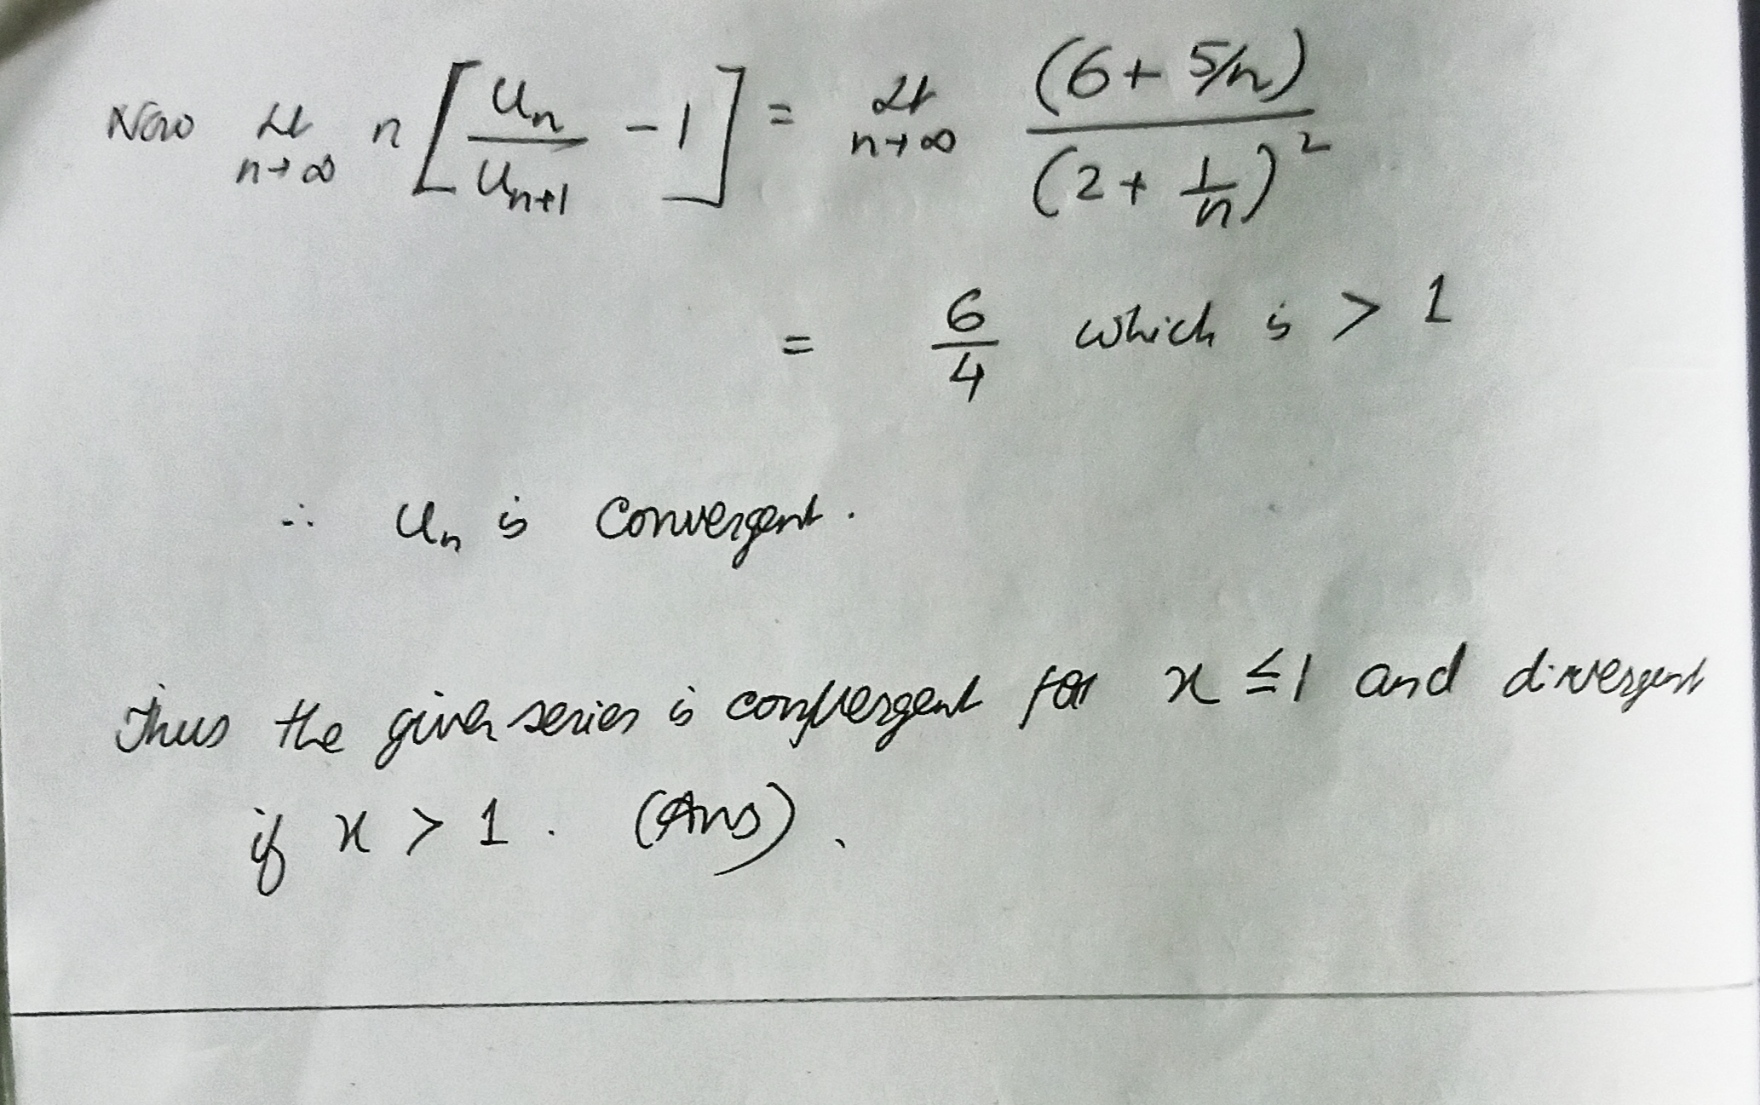 Now Lt n→∞ n[u_n/u_{n+1} - 1] = Lt n→∞ (6 + 5/n)/(2 + 1/n)²
= 6/4 which is > 1
∴ u_n is convergent.
Thus the given series is convergent for x ≤ 1 and divergent
if x > 1. (Ans).